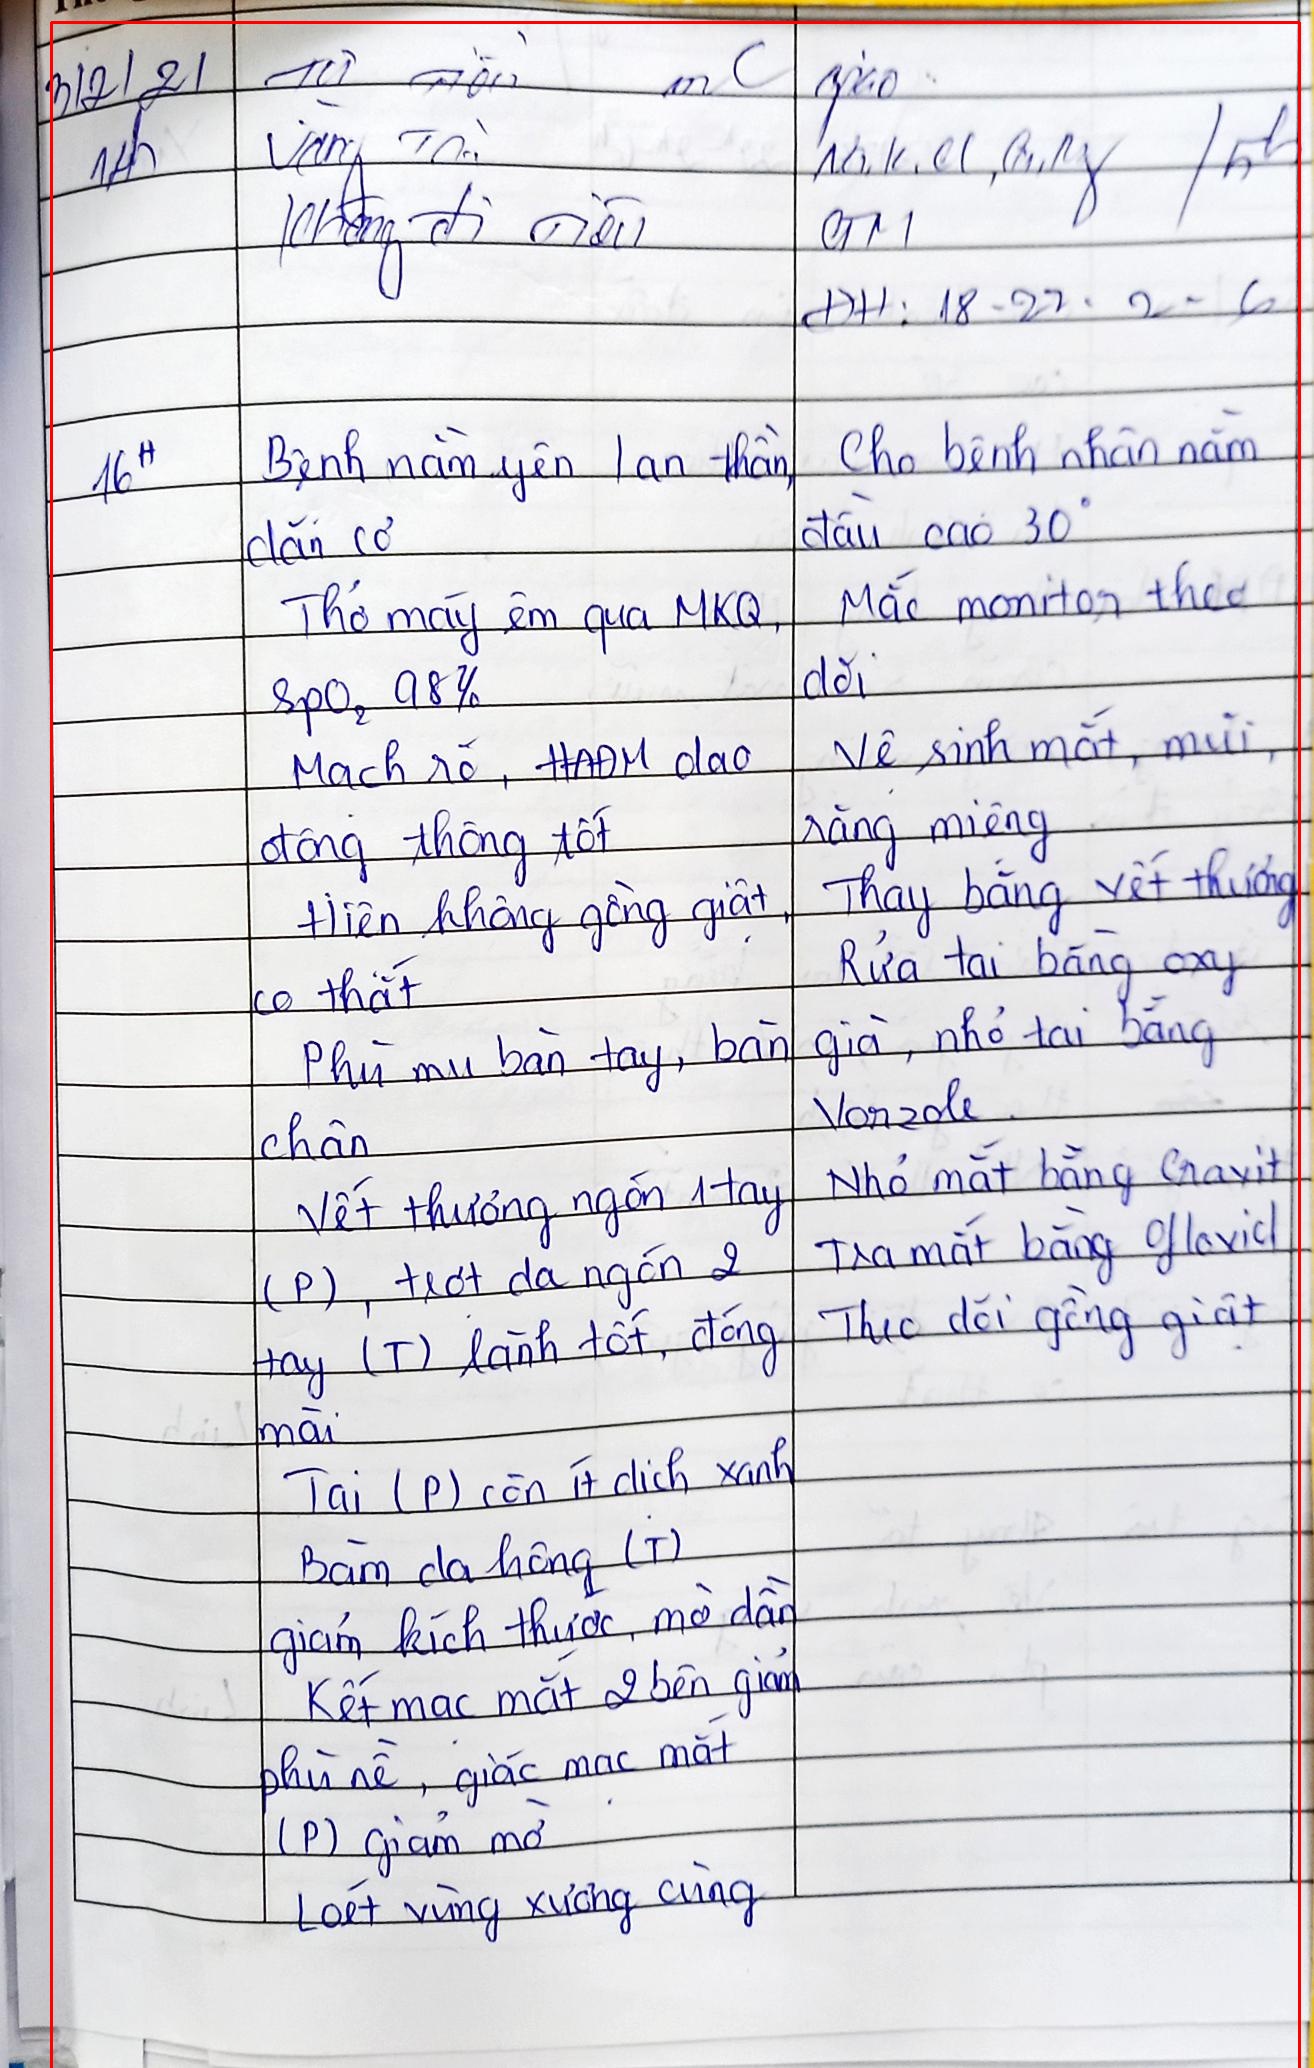 3/2/21
14h
không đi
ĐH: 18 - 22 - 2 - 6
16H
Bệnh nằm yên, an thần,
dãn cơ
Thở máy êm qua MKQ,
SpO2 98%
Mạch rõ, HAĐM dao
động thông tốt
Hiện không gồng giật,
co thắt
Phù mu bàn tay, bàn
chân
Vết thương ngón 1 tay
(P), trợt da ngón 2
tay (T) lành tốt, đóng
mài
Tai (P) còn ít dịch xanh
Bầm da hông (T)
giảm kích thước, mờ dần
Kết mạc mắt 2 bên giảm
phù nề, giác mạc mắt
(P) giảm mờ
Loét vùng xương cùng
Cho bệnh nhân nằm
đầu cao 30°
Mắc monitor theo
dõi
Vệ sinh mắt, mũi,
răng miệng
Thay băng vết thương
Rửa tai bằng oxy
già, nhỏ tai bằng
Vorzole
Nhỏ mắt bằng Cravit
Tra mắt bằng Oflovid
Theo dõi gồng giật